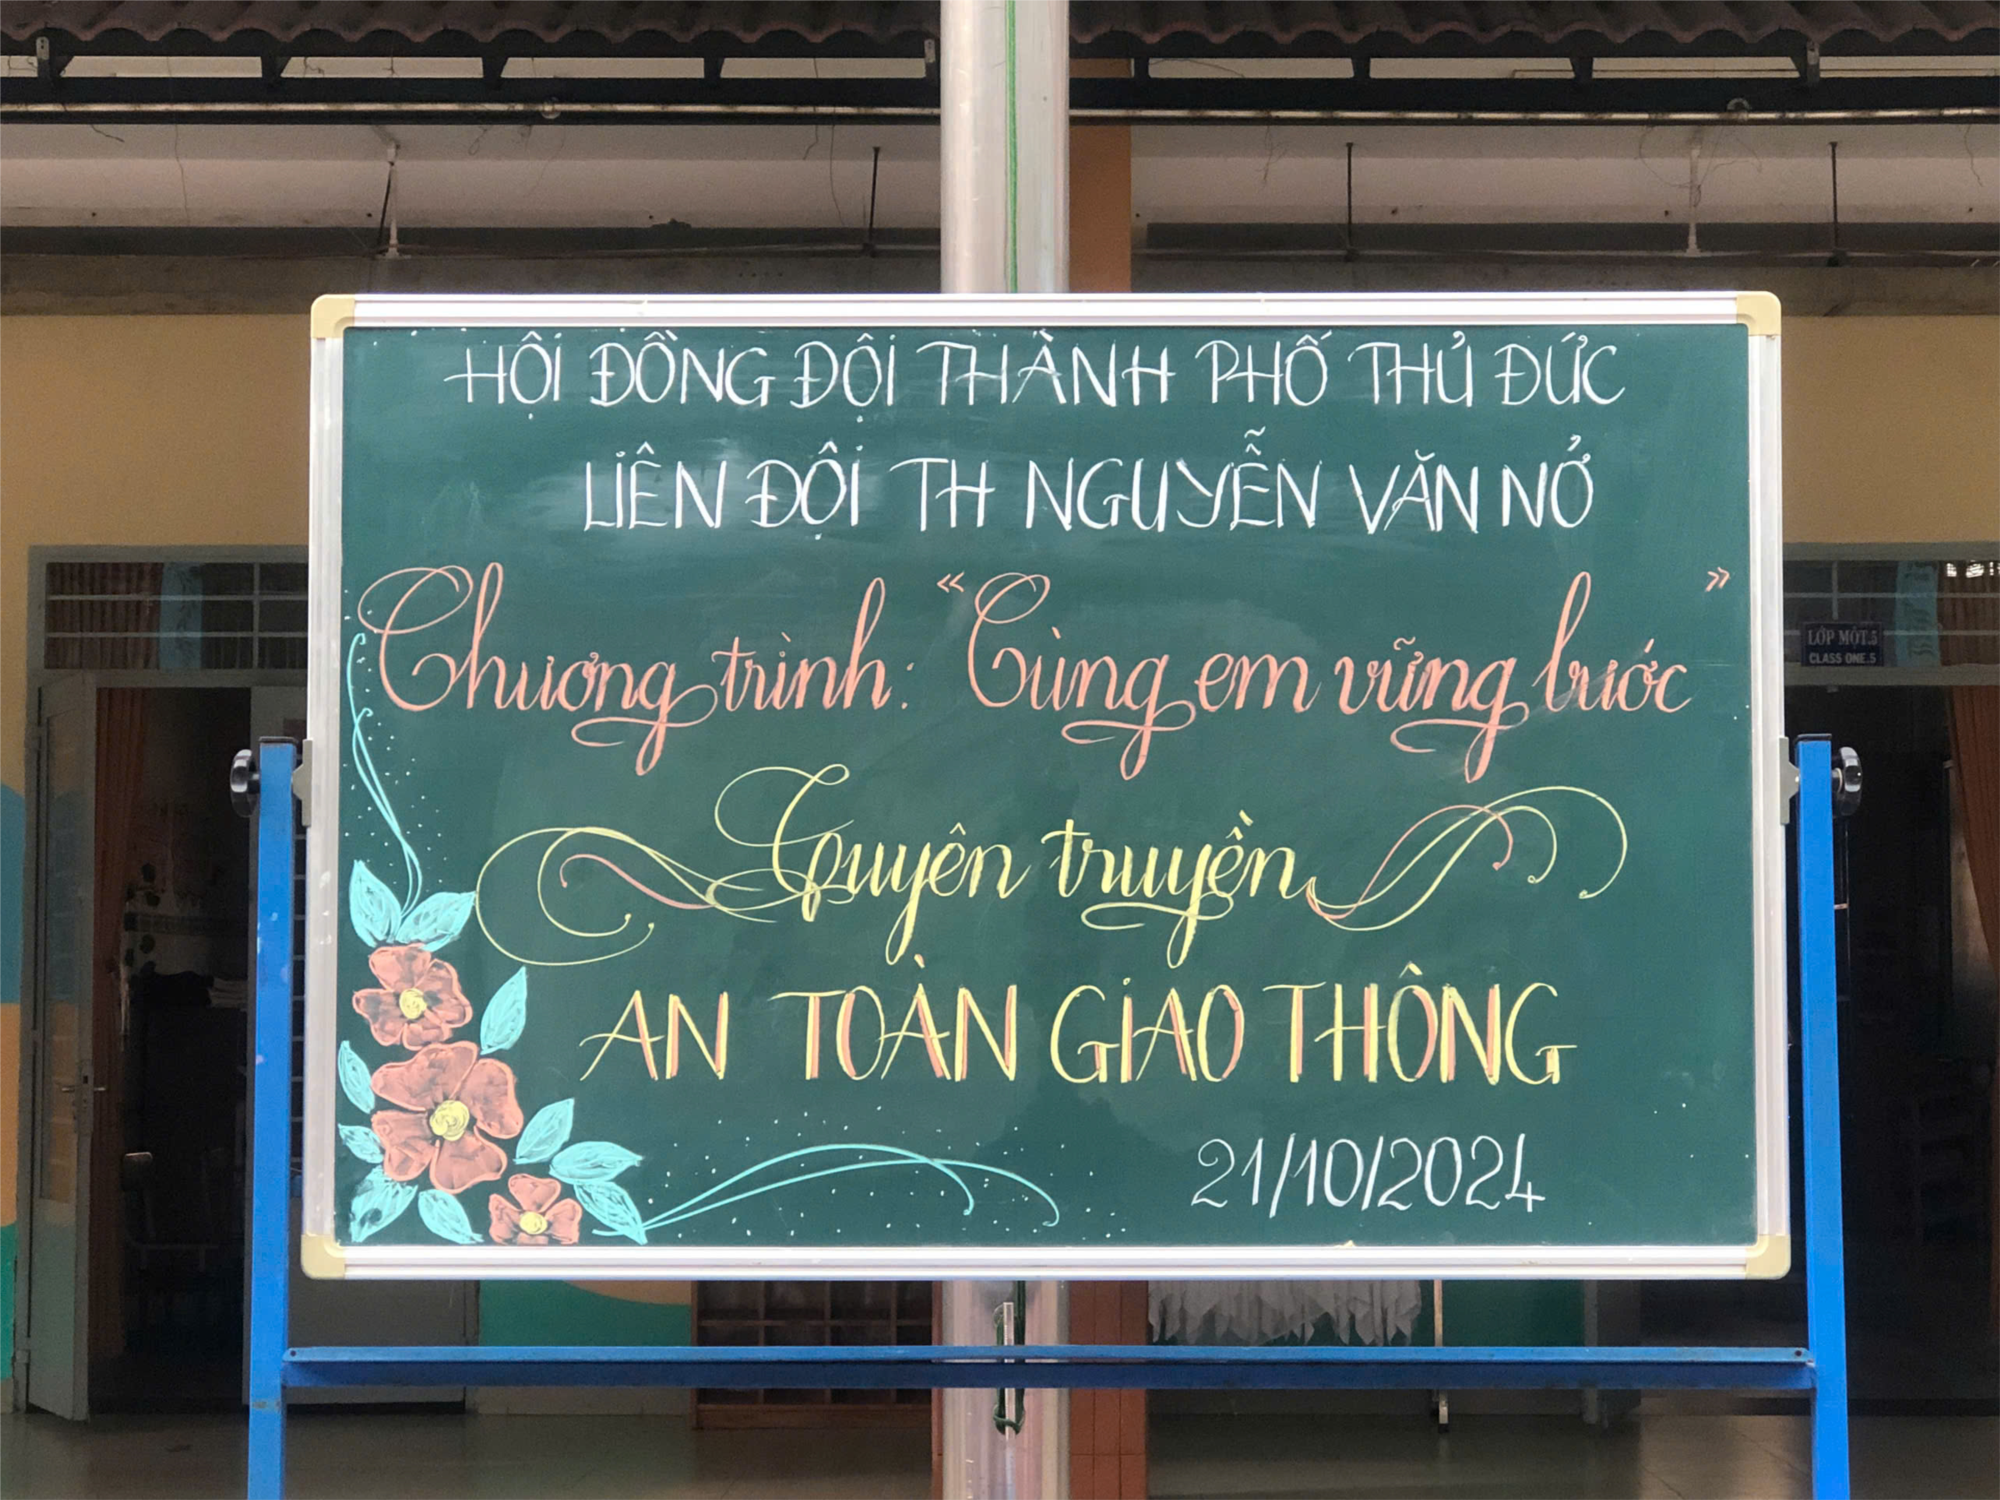 HỘI ĐỒNG ĐỘI THÀNH PHỐ THỦ ĐỨC
LIÊN ĐỘI TH NGUYỄN VĂN NỞ
Chương trình: "Cùng em vững bước"
Tuyên truyền
AN TOÀN GIAO THÔNG
21/10/2024
LỚP MỘT.5
CLASS ONE.5